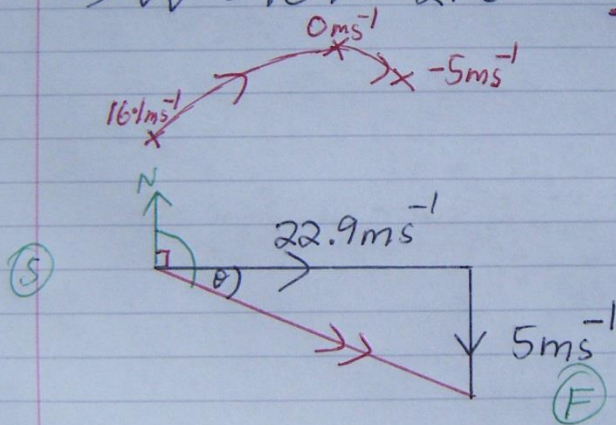 0ms⁻¹
-5ms⁻¹
16.1ms⁻¹
N
22.9ms⁻¹
S
θ
5ms⁻¹
F